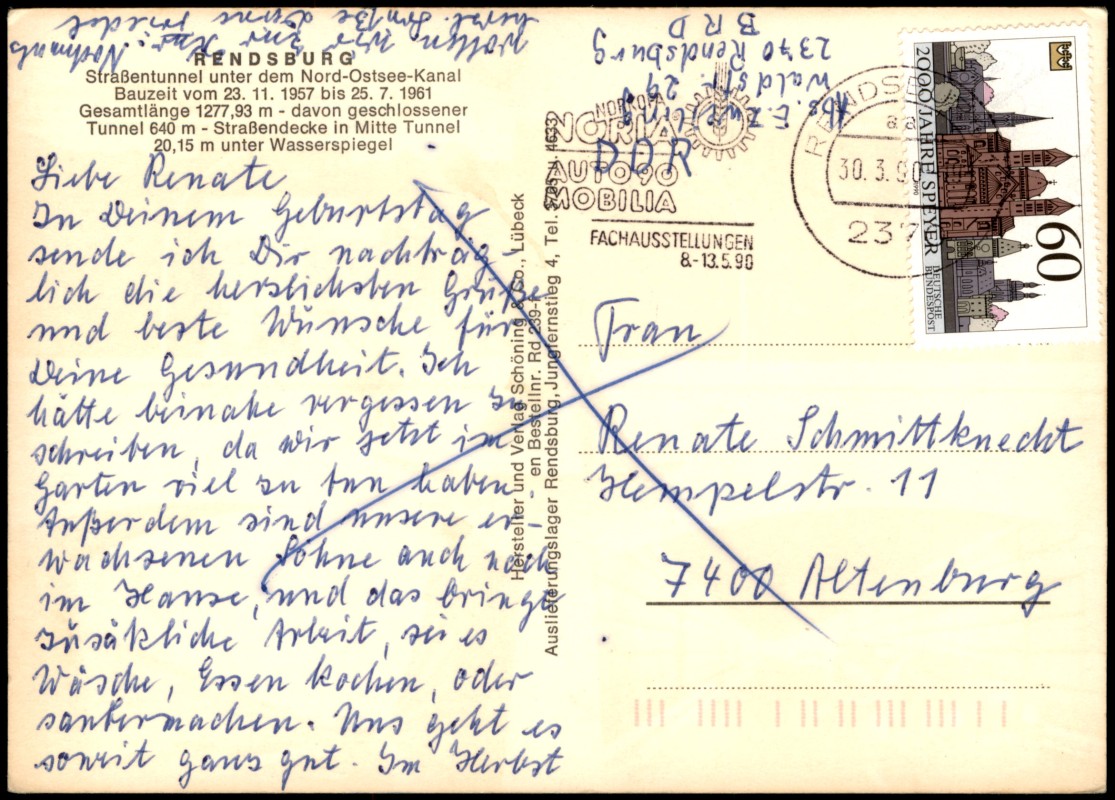 RENDSBURG
Straßentunnel unter dem Nord-Ostsee-Kanal
Bauzeit vom 23. 11. 1957 bis 25. 7. 1961
Gesamtlänge 1277,93 m - davon geschlossener
Tunnel 640 m - Straßendecke in Mitte Tunnel
20,15 m unter Wasserspiegel
Liebe Renate
Zu Deinem Geburtstag
sende ich Dir nachträg-
lich die herzlichsten Grüße
und beste Wünsche für
Deine Gesundheit. Ich
hätte beinahe vergessen zu
schreiben, da wir jetzt im
Garten viel zu tun haben.
Außerdem sind unsere er-
wachsenen Söhne auch noch
im Hause, und das bringt
zusäkliche Arbeit, sei es
Wäsche, Essen kochen, oder
saubermachen. Uns geht es
soweit ganz gut. Im Herbst
wollen wir zur Kur
Nochmals
herzl. Grüße
Hersteller und Verlag Schöning & Co., Lübeck
en Bestellnr. Rd 239-
Auslieferungslager Rendsburg, Jungfernstieg 4, Tel.
Abs. E.
Waldstr. 29
2370 Rendsburg
BRD
DDR
NORKOFA
NORLA
AUTO 90
MOBILIA
FACHAUSSTELLUNGEN
8.-13.5.90
RENDSB
aa
30.3.90
237
2000 JAHRE SPEYER
1990
60
DEUTSCHE
BUNDESPOST
Frau
Renate Schmittknecht
Hempelstr. 11
7400 Altenburg